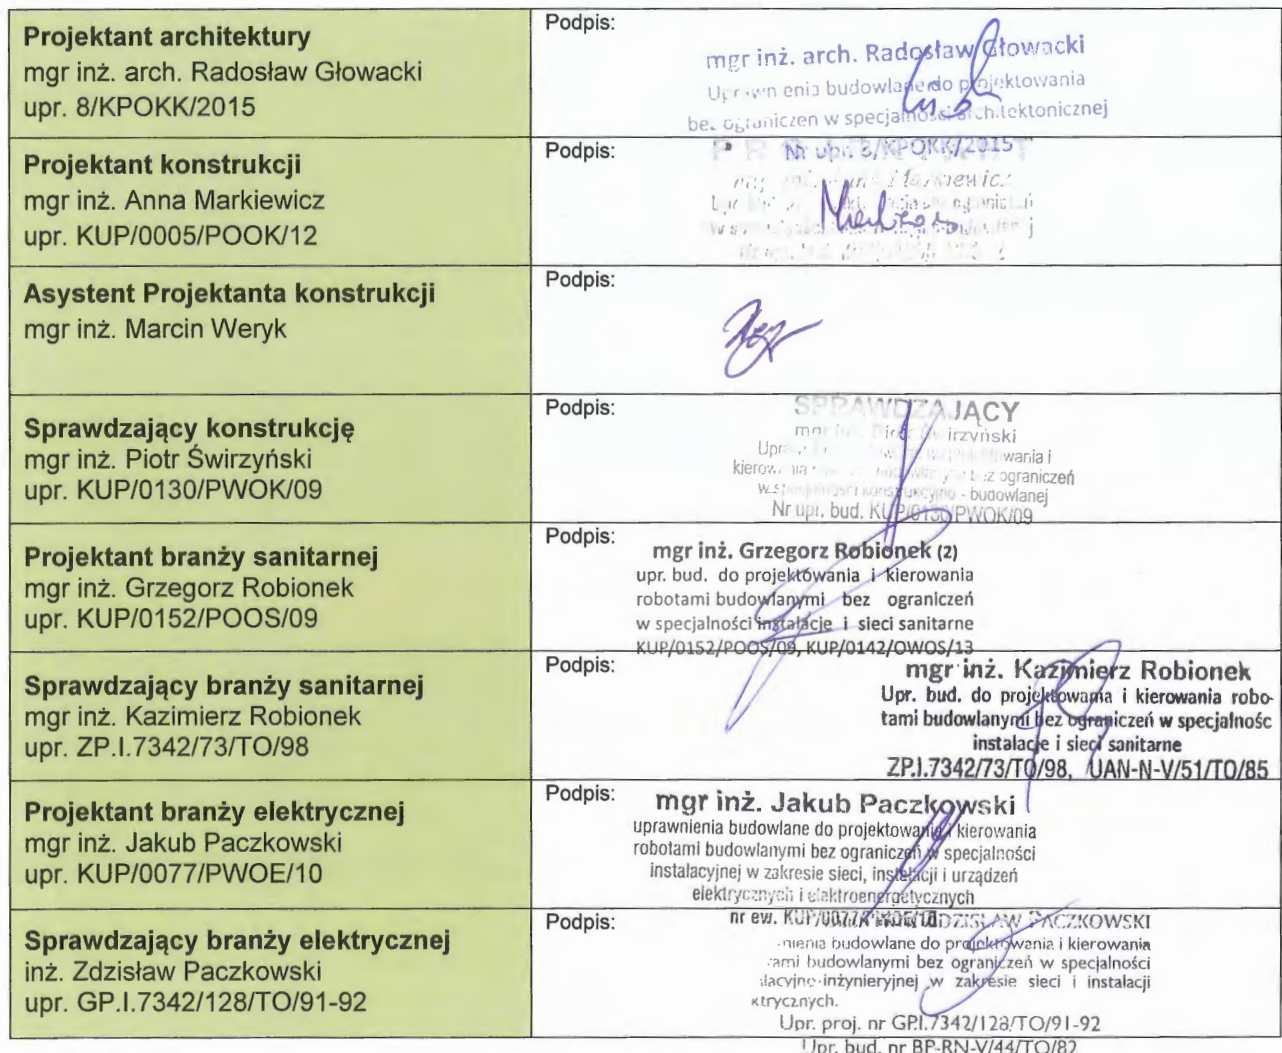 Projektant architektury
mgr inż. arch. Radosław Głowacki
upr. 8/KPOKK/2015
Podpis:
mgr inż. arch. Radosław Głowacki
budowlane do projektowania
w specjalności architektonicznej
Nr upr. 8/KPOKK/2015
Projektant konstrukcji
mgr inż. Anna Markiewicz
upr. KUP/0005/POOK/12
Podpis:
Asystent Projektanta konstrukcji
mgr inż. Marcin Weryk
Podpis:
Sprawdzający konstrukcję
mgr inż. Piotr Świrzyński
upr. KUP/0130/PWOK/09
Podpis:
SPRAWDZAJĄCY
bez ograniczeń
- budowlanej
Nr upr. bud. KUP/0130/PWOK/09
Projektant branży sanitarnej
mgr inż. Grzegorz Robionek
upr. KUP/0152/POOS/09
Podpis:
mgr inż. Grzegorz Robionek (2)
upr. bud. do projektowania i kierowania
robotami budowlanymi bez ograniczeń
w specjalności instalacje i sieci sanitarne
KUP/0152/POOS/09, KUP/0142/OWOS/13
Sprawdzający branży sanitarnej
mgr inż. Kazimierz Robionek
upr. ZP.I.7342/73/TO/98
Podpis:
mgr inż. Kazimierz Robionek
Upr. bud. do projektowania i kierowania robo-
tami budowlanymi bez ograniczeń w specjalnośc
instalacje i sieci sanitarne
ZP.I.7342/73/TO/98, UAN-N-V/51/TO/85
Projektant branży elektrycznej
mgr inż. Jakub Paczkowski
upr. KUP/0077/PWOE/10
Podpis:
mgr inż. Jakub Paczkowski
uprawnienia budowlane do projektowania i kierowania
robotami budowlanymi bez ograniczeń w specjalności
instalacyjnej w zakresie sieci, instalacji i urządzeń
elektrycznych i elektroenergetycznych
nr ew. KUP/0077/PWOE/10
Sprawdzający branży elektrycznej
inż. Zdzisław Paczkowski
upr. GP.I.7342/128/TO/91-92
Podpis:
ZDZISŁAW PACZKOWSKI
budowlane do projektowania i kierowania
budowlanymi bez ograniczeń w specjalności
w zakresie sieci i instalacji
Upr. proj. nr GP.I.7342/128/TO/91-92
Upr. bud. nr BP-RN-V/44/TO/82